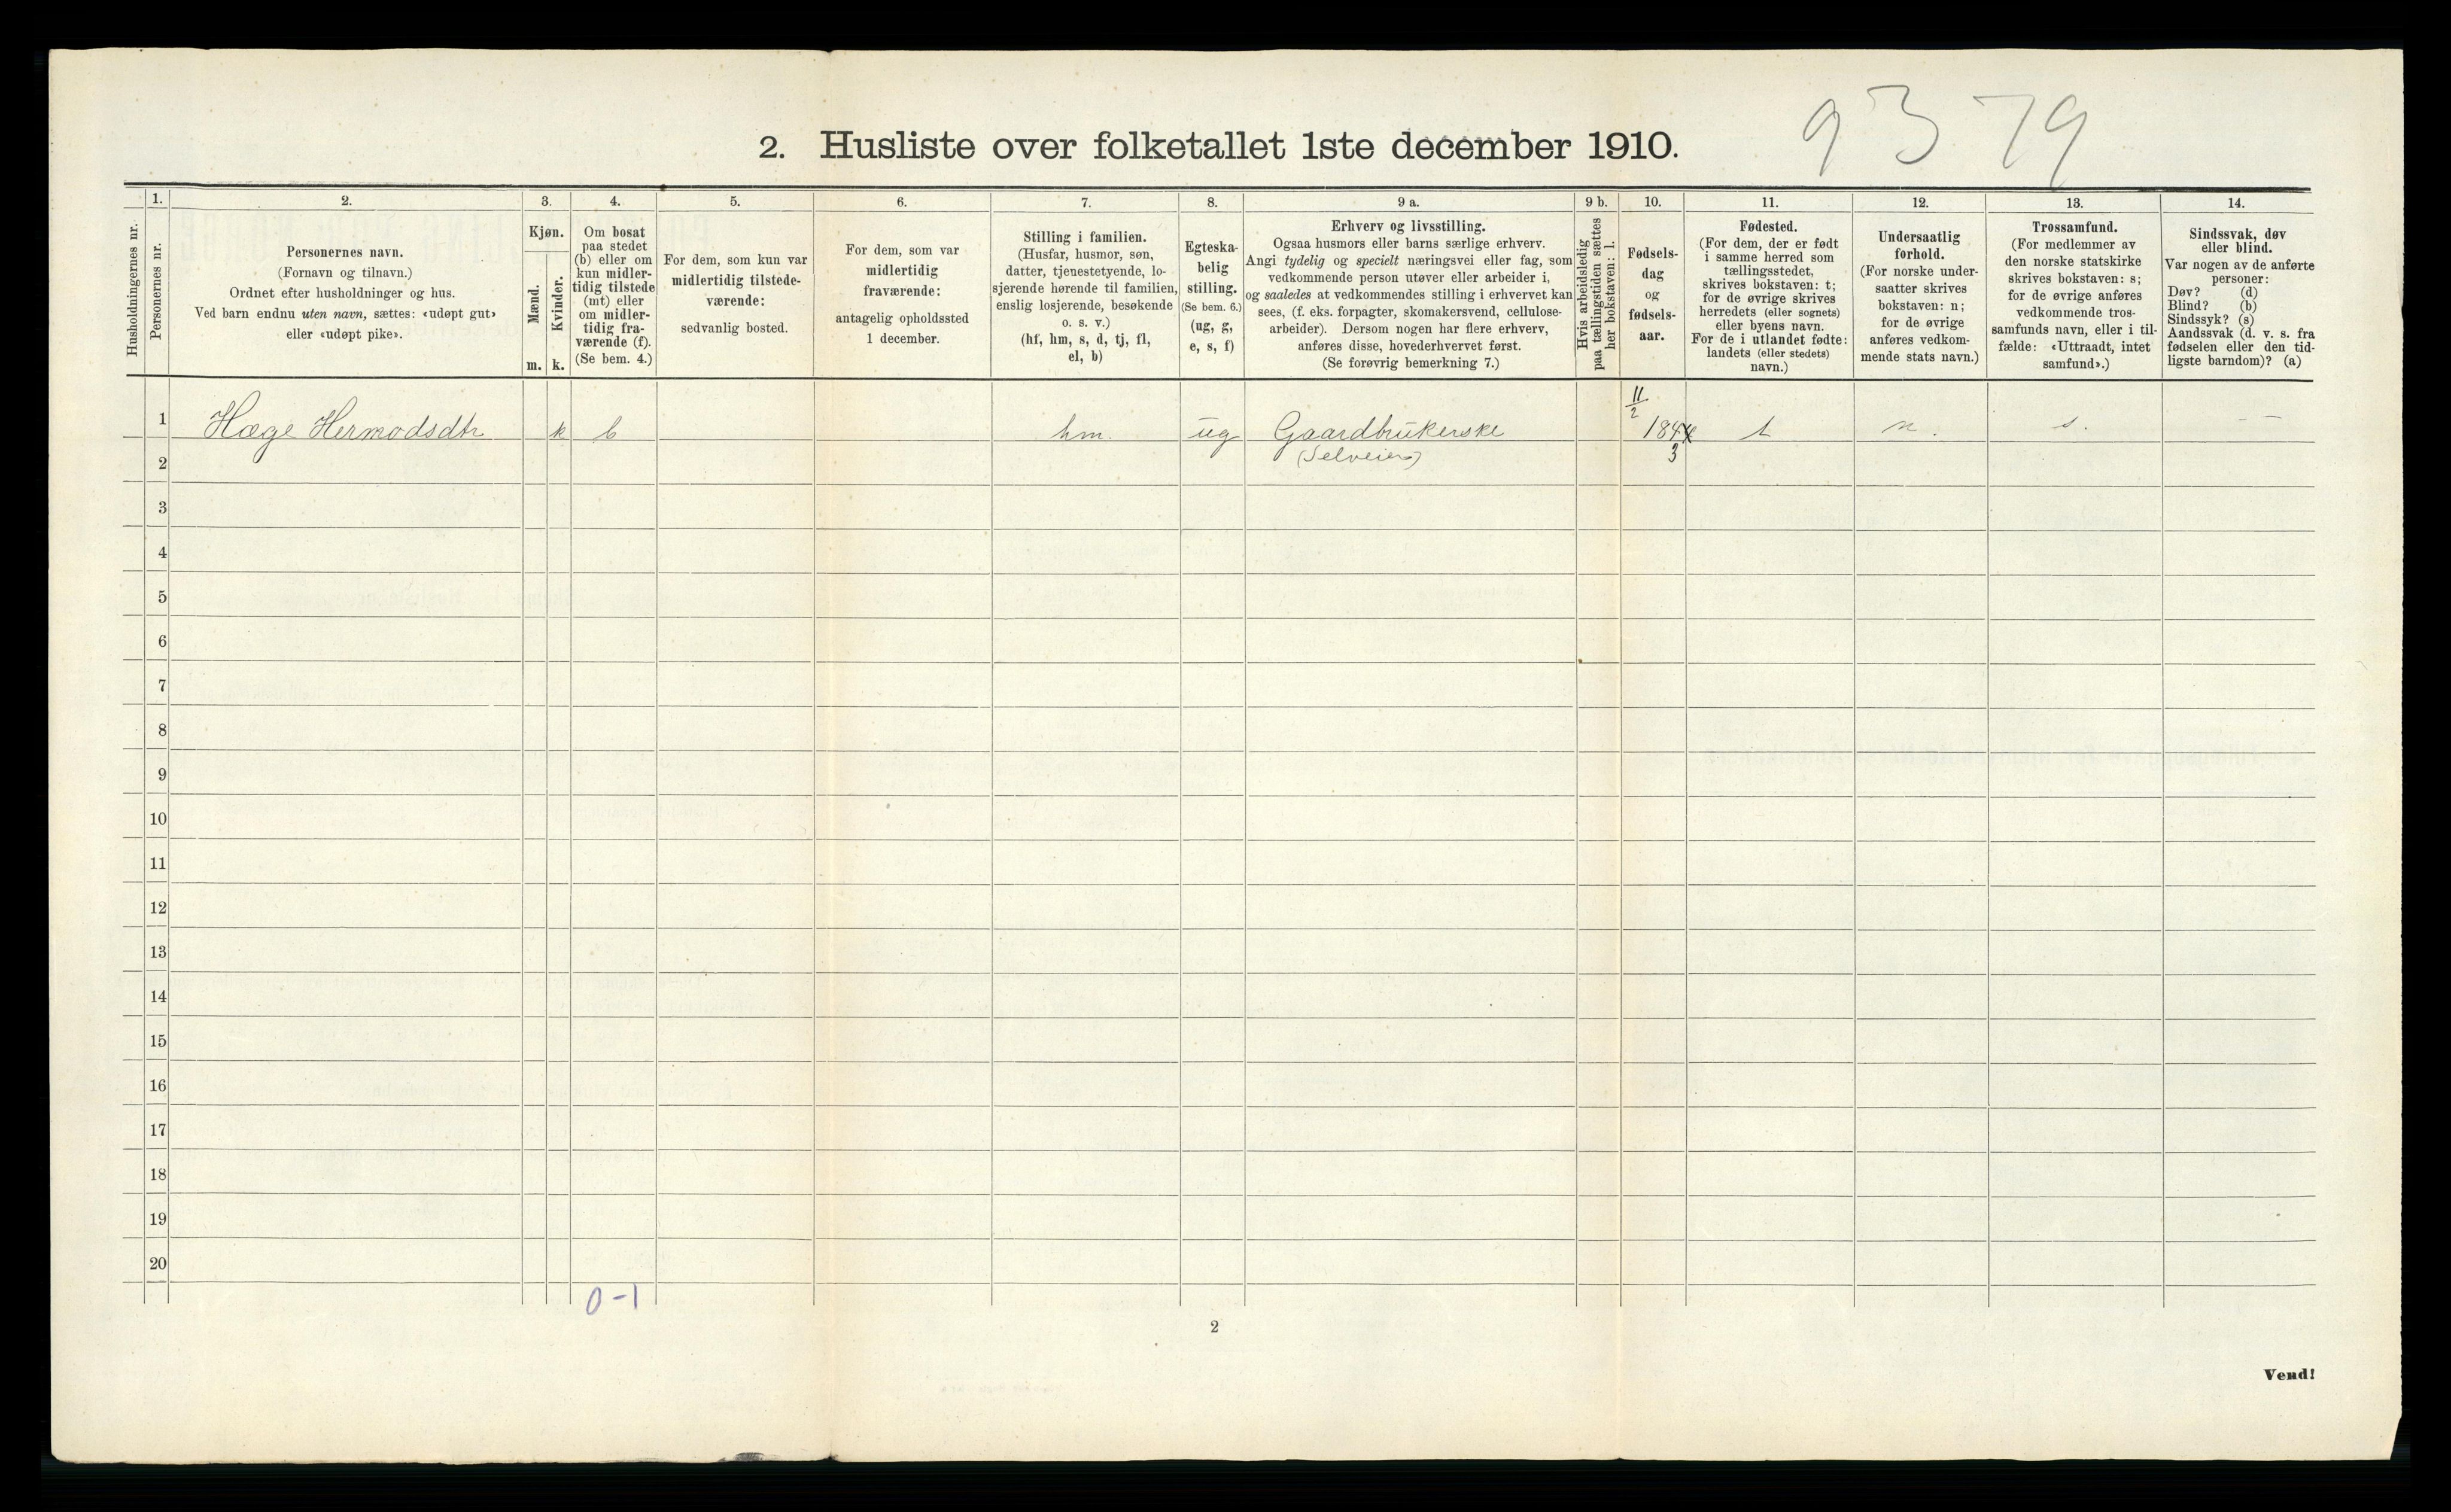 9379
2. Husliste over folketallet 1ste december 1910.
Husholdningernes nr.
1.
Personernes nr.
2.
Personernes navn.
(Fornavn og tilnavn.)
Ordnet efter husholdninger og hus.
Ved barn endnu uten navn, sættes: «udøpt gut»
eller «udøpt pike».
3.
Kjøn.
Mænd.
Kvinder.
m. k.
4.
Om bosat
paa stedet
(b) eller om
kun midler-
tidig tilstede
(mt) eller
om midler-
tidig fra-
værende (f).
(Se bem. 4.)
5.
For dem, som kun var
midlertidig tilstede-
værende:
sedvanlig bosted.
6.
For dem, som var
midlertidig
fraværende:
antagelig opholdssted
1 december.
7.
Stilling i familien.
(Husfar, husmor, søn,
datter, tjenestetyende, lo-
sjerende hørende til familien,
enslig losjerende, besøkende
o. s. v.)
(hf, hm, s, d, tj, fl,
el, b)
8.
Egteska-
belig
stilling.
(Se bem. 6.)
(ug, g,
e, s, f)
9 a.
Erhverv og livsstilling.
Ogsaa husmors eller barns særlige erhverv.
Angi tydelig og specielt næringsvei eller fag, som
vedkommende person utøver eller arbeider i,
og saaledes at vedkommendes stilling i erhvervet kan
sees, (f. eks. forpagter, skomakersvend, cellulose-
arbeider). Dersom nogen har flere erhverv,
anføres disse, hovederhvervet først.
(Se forøvrig bemerkning 7.)
9 b.
Hvis arbeidsledig
paa tællingstiden sættes
her bokstaven: l.
10.
Fødsels-
dag
og
fødsels-
aar.
11.
Fødested.
(For dem, der er født
i samme herred som
tællingsstedet,
skrives bokstaven: t;
for de øvrige skrives
herredets (eller sognets)
eller byens navn.
For de i utlandet fødte:
landets (eller stedets)
navn.)
12.
Undersaatlig
forhold.
(For norske under-
saatter skrives
bokstaven: n;
for de øvrige
anføres vedkom-
mende stats navn.)
13.
Trossamfund.
(For medlemmer av
den norske statskirke
skrives bokstaven: s;
for de øvrige anføres
vedkommende tros-
samfunds navn, eller i til-
fælde: «Uttraadt, intet
samfund».)
14.
Sindssvak, døv
eller blind.
Var nogen av de anførte
personer:
Døv? (d)
Blind? (b)
Sindssyk? (s)
Aandssvak (d. v. s. fra
fødselen eller den tid-
ligste barndom)? (a)
11/2
1 Hæge Hermodsdtr k b hm. ug Gaardbrukerske 1844 t n. s. - -
(Selveier) 3
2
3
4
5
6
7
8
9
10
11
12
13
14
15
16
17
18
19
20
0-1
2
Vend!